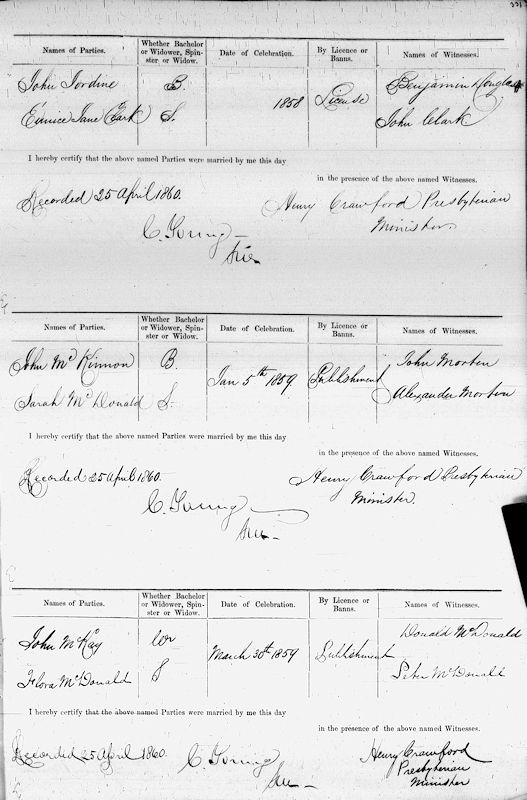 331
Names of Parties. Whether Bachelor or Widower, Spinster or Widow. Date of Celebration. By Licence or Banns. Names of Witnesses.
John Jordine B. 1858 License Benjamin Douglas
Eunice Jane Clark S. John Clark
I hereby certify that the above named Parties were married by me this day
in the presence of the above named Witnesses.
Recorded 25 April 1860. Henry Crawford Presbyterian
Minister
C. Young
Names of Parties. Whether Bachelor or Widower, Spinster or Widow. Date of Celebration. By Licence or Banns. Names of Witnesses.
John McKinnon B. Jan 5th 1859 Publishment John Morten
Sarah McDonald S. Alexander Morten
I hereby certify that the above named Parties were married by me this day
in the presence of the above named Witnesses.
Recorded 25 April 1860. Henry Crawford Presbyterian
Minister.
C. Young
Names of Parties. Whether Bachelor or Widower, Spinster or Widow. Date of Celebration. By Licence or Banns. Names of Witnesses.
John McKay Wr March 30th 1859 Publishment Donald McDonald
Flora McDonald S Peter McDonald
I hereby certify that the above named Parties were married by me this day
in the presence of the above named Witnesses.
Recorded 25 April 1860. C. Young Henry Crawford
Presbyterian
Minister